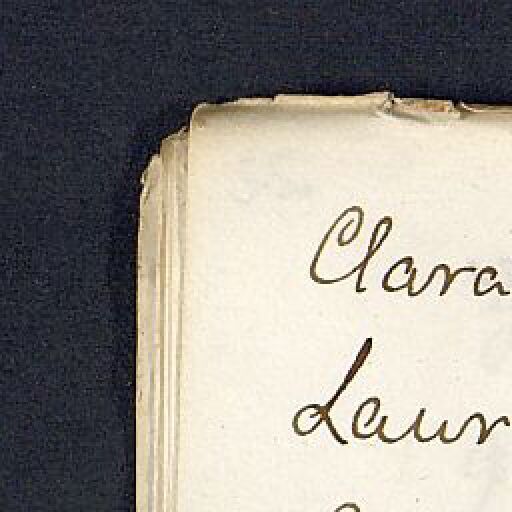 Clara
Laur